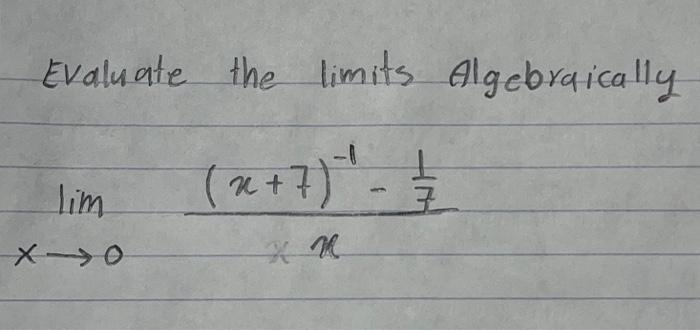 Evaluate the limits Algebraically
lim (x+7)^-1 - 1/7
x→0 x